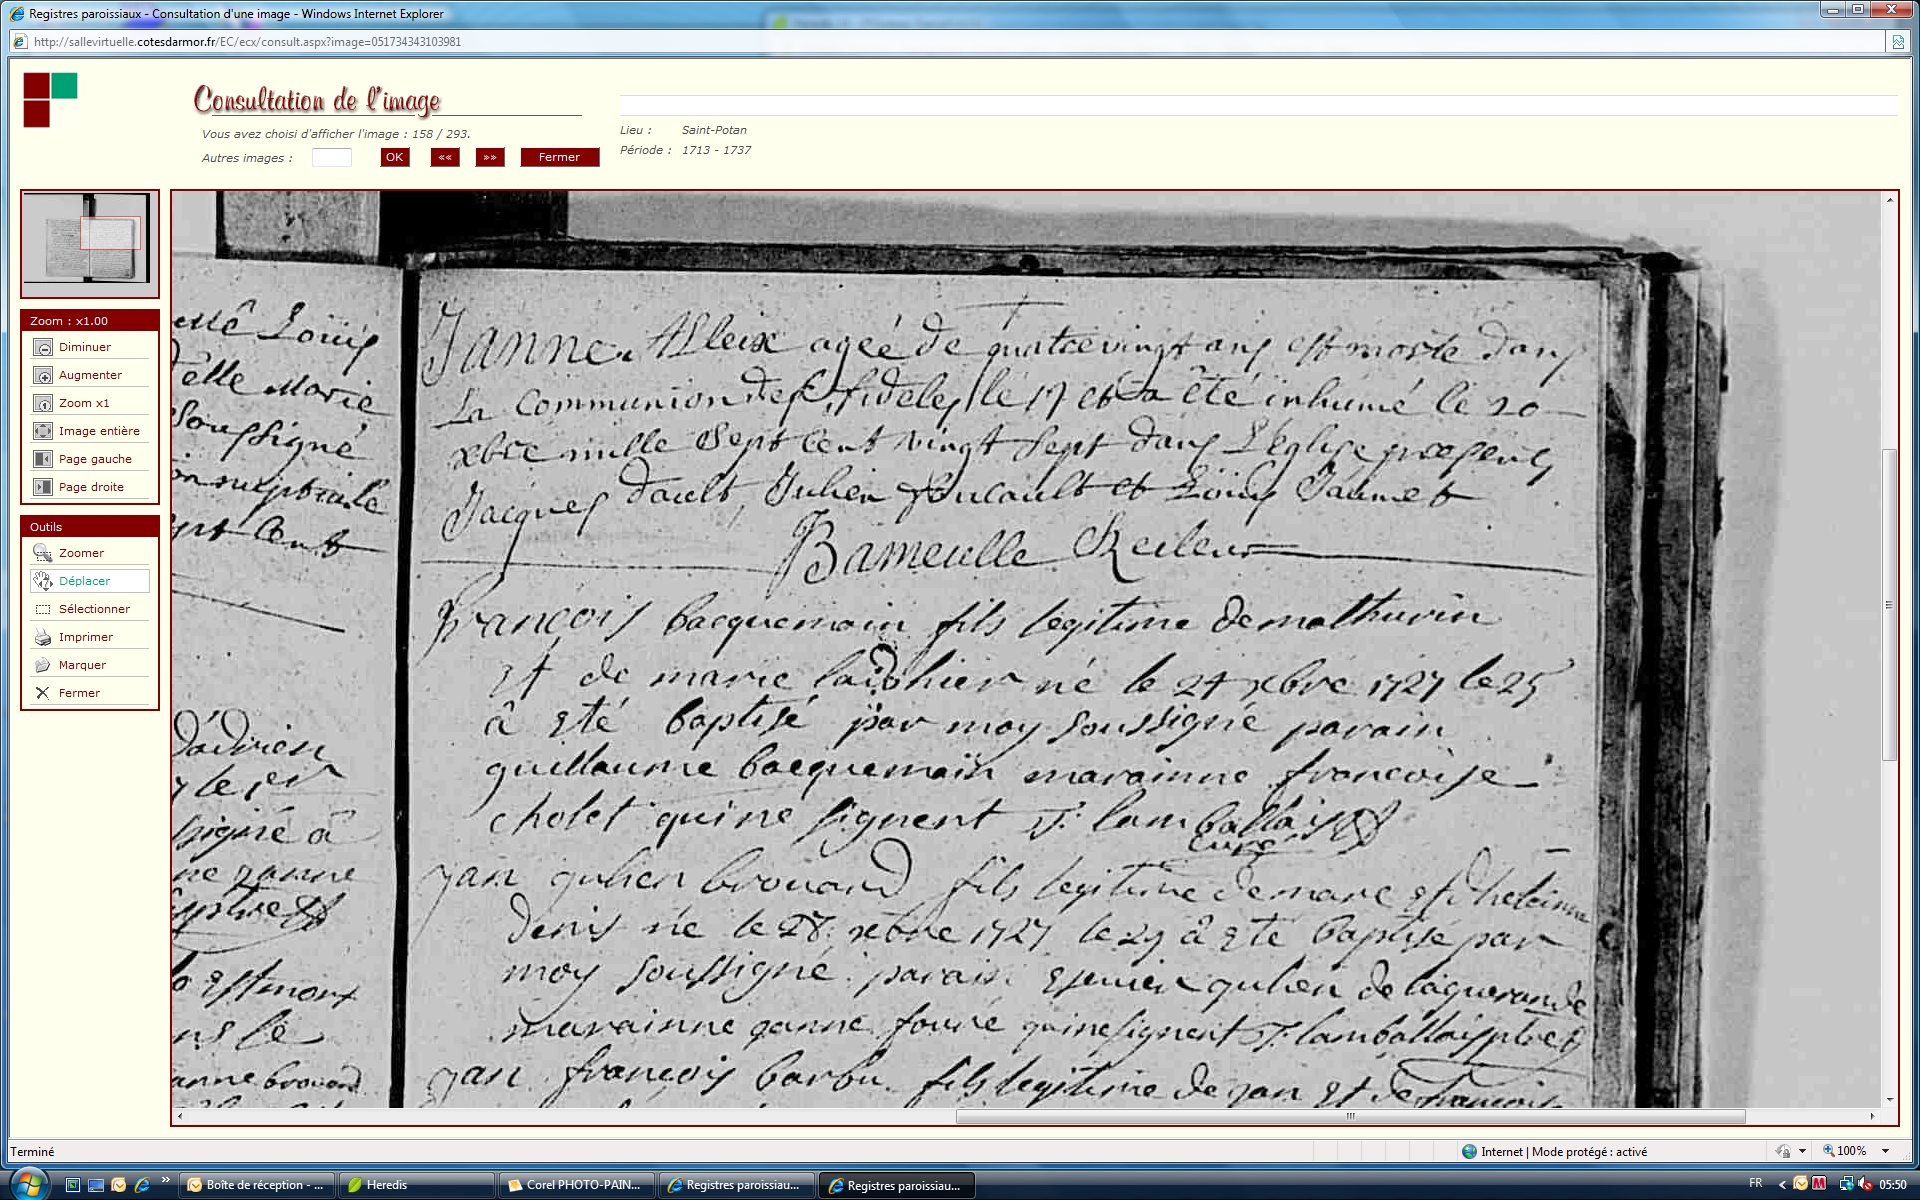 Registres paroissiaux - Consultation d'une image - Windows Internet Explorer
http://sallevirtuelle.cotesdarmor.fr/EC/ecx/consult.aspx?image=051734343103981
Consultation de l'image
Vous avez choisi d'afficher l'image : 158 / 293.
Autres images :
OK
««
»»
Fermer
Lieu : Saint-Potan
Période : 1713 - 1737
Zoom : x1.00
Diminuer
Augmenter
Zoom x1
Image entière
Page gauche
Page droite
Outils
Zoomer
Déplacer
Sélectionner
Imprimer
Marquer
Fermer
Loüis
elle Marie
soussigné
cent
le
signé à
ne janne
ns le
anne brouard
Janne Alleix agée de quatrevingt ans est morte dans
la Communion des fideles le 19 et a êté inhumé le 20
xbre mille sept cent vingt sept dans L'église presents
Jacques dault Julien foucault et Loüis Jaumet
Bameulle Recteur
françois bacquemain fils legitime de mathurin
et de marie né le 24 xbre 1727 le 25
â eté baptisé par moy soussigné parain
guillaume bacquemain marainne francoise
cholet qui ne signent J. lamballais
curé
jan julien brouard fils legitime de marc et d'helainne
denis né le 28 xbre 1727 le 29 â eté baptisé par
moy soussigné parain julien de laguerande
marainne janne fouré qui ne signent J. lamballais ptre
jan françois barbu fils legitime de jan et de françoise
Terminé
Internet | Mode protégé : activé
100%
Boîte de réception - ...
Heredis
Corel PHOTO-PAIN...
Registres paroissiau...
Registres paroissiau...
FR
05:50